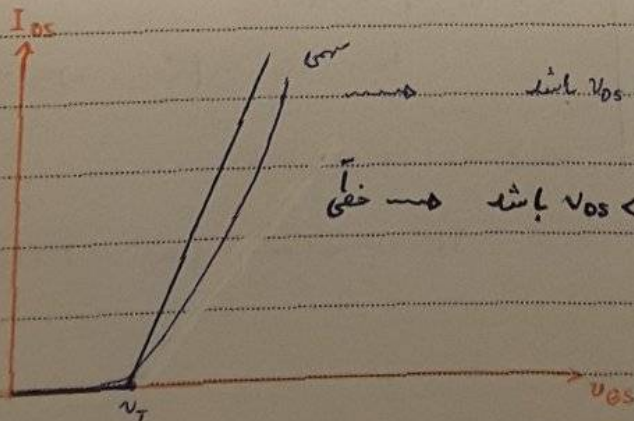 I DS
سهمی
باشد VDS
VDS < باشد خطی
VT
VGS